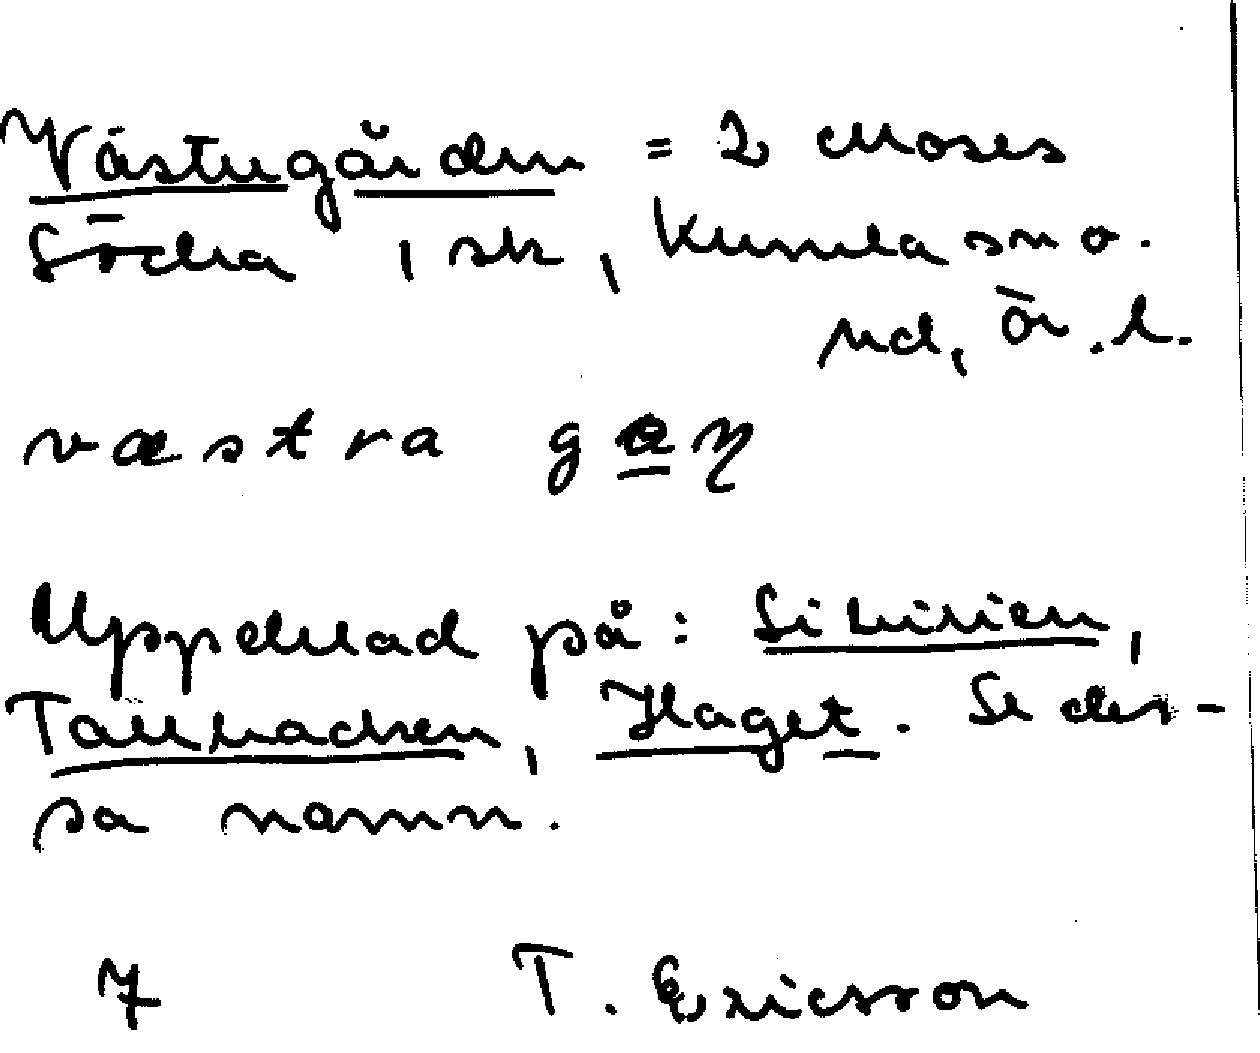 Västergården = 2 Moses
Södra, sk, Kumla sn o.
hd, Ör. l.
væstra gɑɳ
Uppdelad på: Sibirien,
Tallbacken, Haget. Se des-
sa namn.
7 T. Ericsson